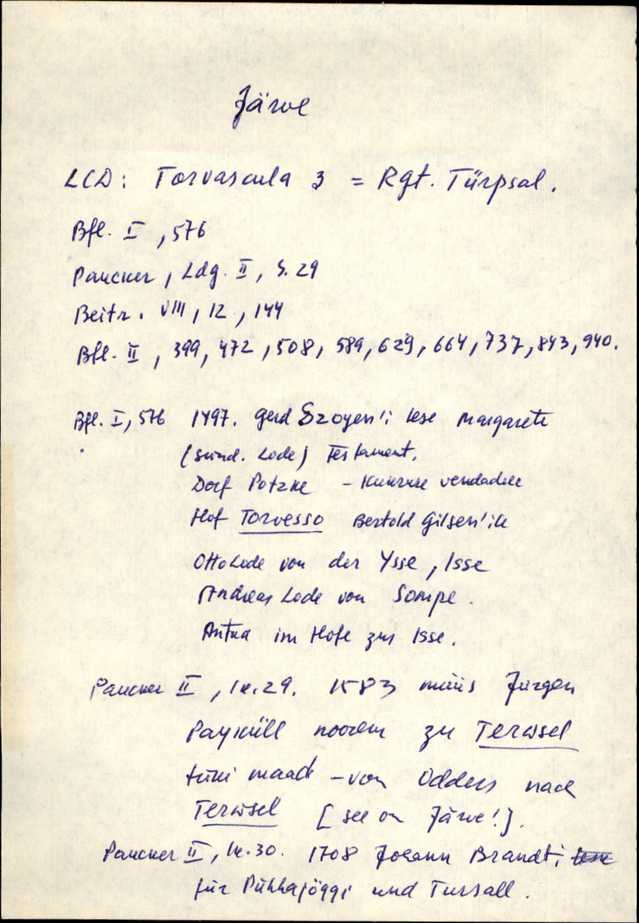 Järve
LCD: Torvascula 3 = Rgt. Türpsal.
Bfl. I, 576
Paucker, Ldg. II, S. 29
Beitr. VIII, 12, 144
Bfl. II, 399, 472, 508, 589, 629, 664, 737, 843, 940.
Bfl. I, 576 1497. Gerd Szoyen'i lese Margarete
(sünd. Lode) Testament.
Dorf Potzke - Kunrure vendadele
Hof Torvesso Bertold Gilsen'ile
Otto Lode von der Ysse, Isse
Andreas Lode von Sompe.
Anna im Hofe zur Isse.
Paucker II, lk. 29. 1583 müüs Jürgen
Payküll noorem zu Terwsel
tüki maad - von Odders nach
Terwsel [see on Järve!].
Paucker II, lk. 30. 1708 Johann Brandt;
für Pühhajöggi und Tursall.